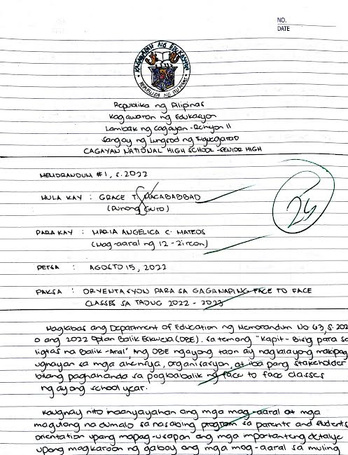 NO.
DATE
KAGAWARAN NG EDUKASYON
REPUBLIKA NG PILIPINAS
Republika ng Pilipinas
Kagawaran ng Edukasyon
Lambak ng Cagayan - Rehiyon II
Sangay ng Lungsod ng Tuguegarao
CAGAYAN NATIONAL HIGH SCHOOL - SENIOR HIGH
MEMORANDUM #1, s. 2022
MULA KAY : GRACE T. MACABABBAD
(Punong Guro)
PARA KAY : MARIA ANGELICA C. MATEOS
(Mag-aaral ng 12 - Zircon)
PETSA : AGOSTO 15, 2022
PAKSA : ORYENTASYON PARA SA GAGANAPING FACE TO FACE
CLASSES SA TAONG 2022 - 2023
Naglabas ang Department of Education ng Memorandum No 63, s. 2022
o ang 2022 Oplan Balik Eskwela (OBE), sa temang "Kapit-Bisig para sa
ligtas na Balik-Aral". Ang OBE ngayong taon ay naglalayong makipag
ugnayan sa mga ahensiya, organisasyon, at iba pang stakeholder
bilang paghahanda sa pagbabalik ng face to face classes
ng ayong school year.
Kaugnay nito inaanyayahan ang mga mag-aaral at mga
magulang na dumalo sa nasabing program sa parents and students
orientation upang mapag-usapan ang mga importanteng detalye
upang magkaroon ng gabay ang mga mag-aaral sa muling